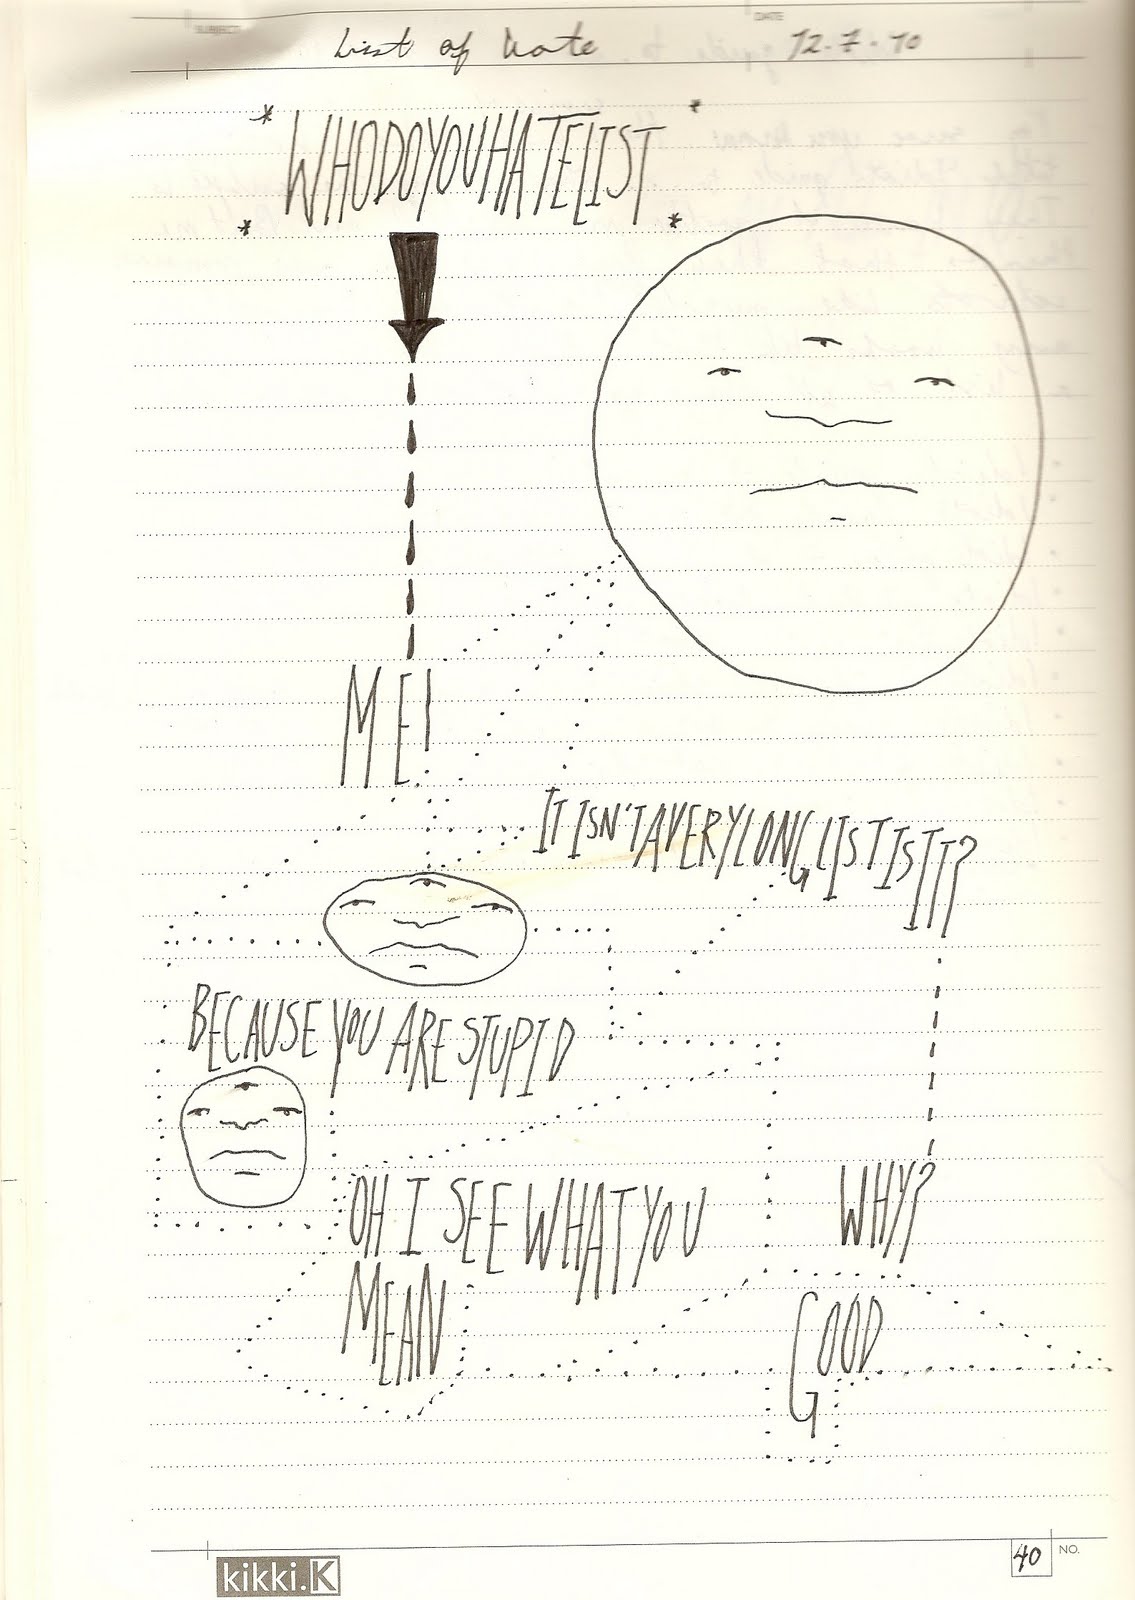 SUBJECT
DATE
List of hate 12.7.10
* WHODOYOUHATELIST *
ME!
IT ISN'T A VERY LONG LIST IS IT?
BECAUSE YOU ARE STUPID
OH I SEE WHAT YOU
MEAN
WHY?
GOOD
kikki.K
40 NO.